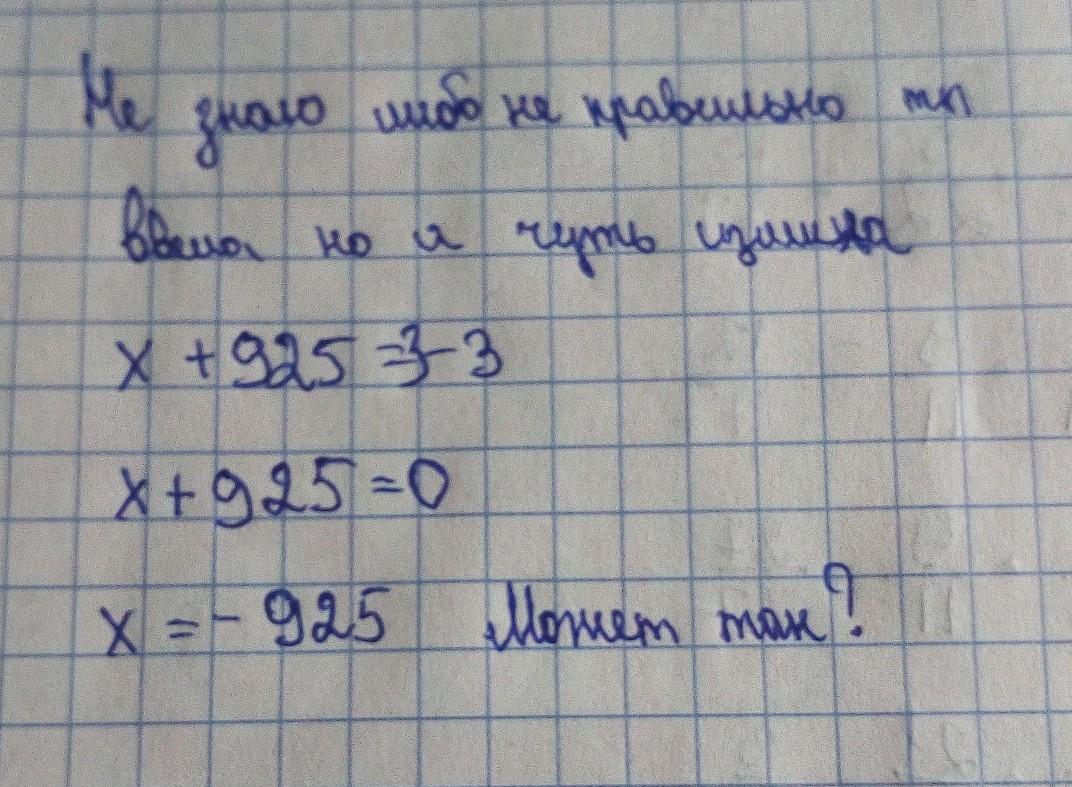 Не знаю либо не правильно тп
ввела но и чуть
x + 925 = 3 - 3
x + 925 = 0
x = - 925 Может так?